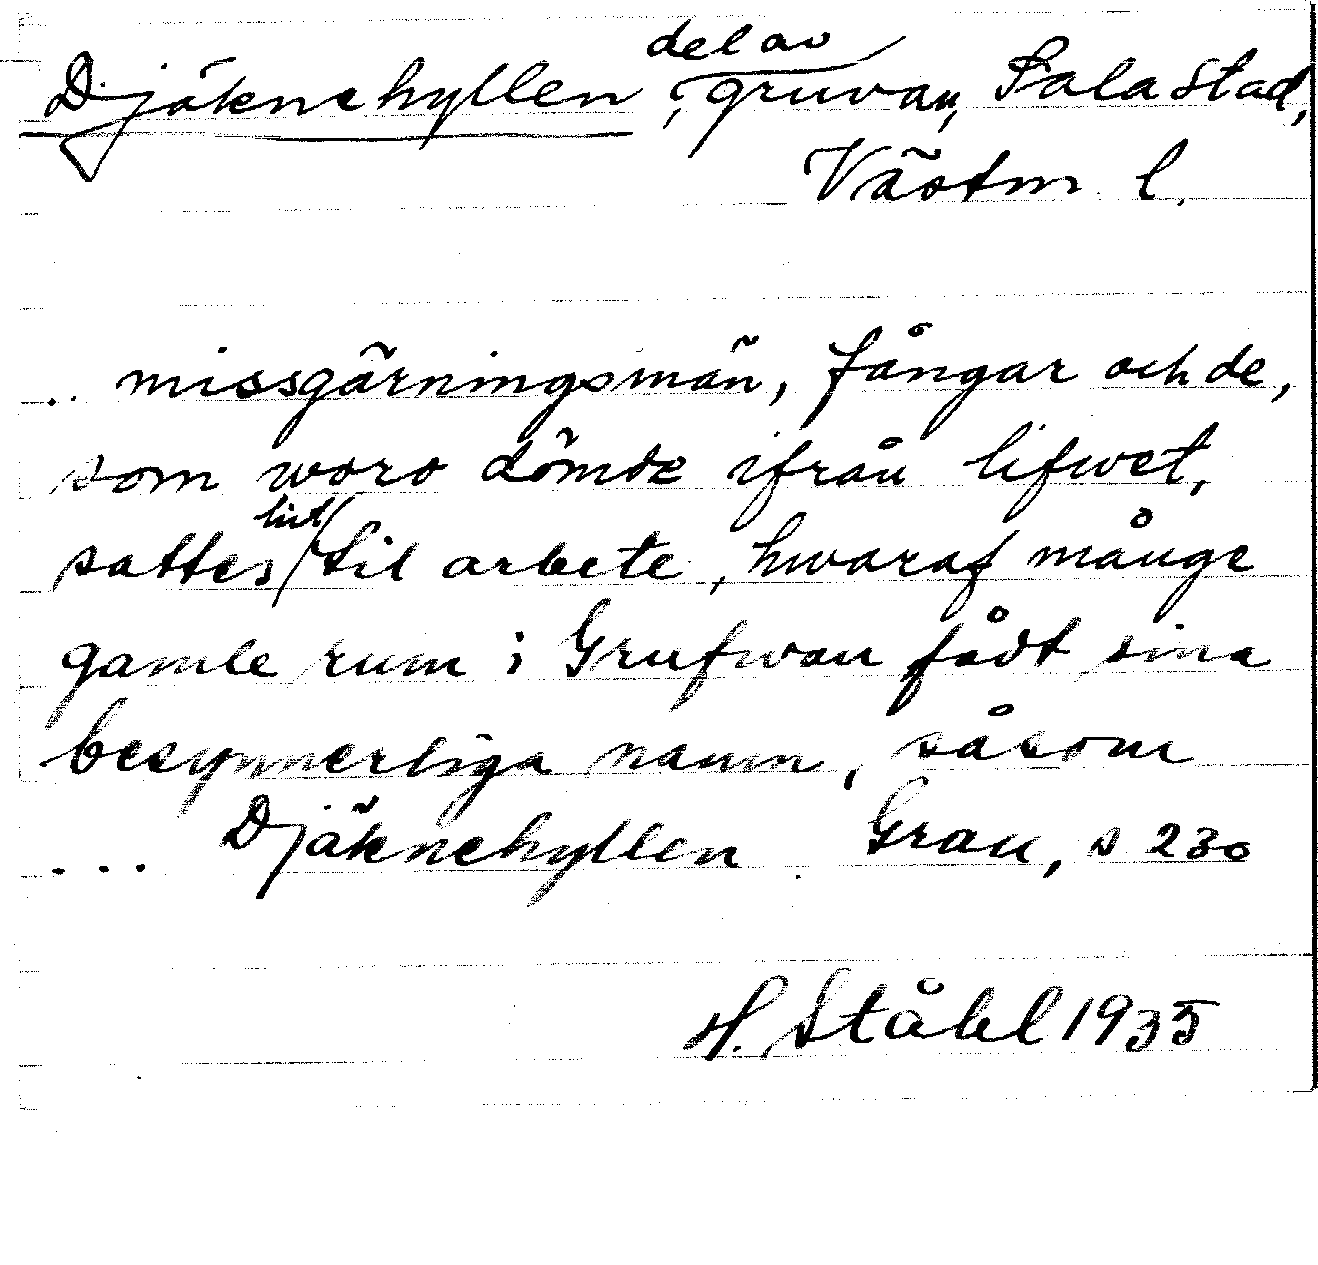 Djäknehyllen, del av gruvan, Sala stad,
Västm l.
.. missgärningsmän, fångar och de,
som woro dömde ifrån lifwet,
sattes hit til arbete, hwaraf månge
gamle rum i Grufwan fådt sina
besynnerliga namn, såsom
... Djäknehyllen. Grau, s 230
H. Ståhl 1935